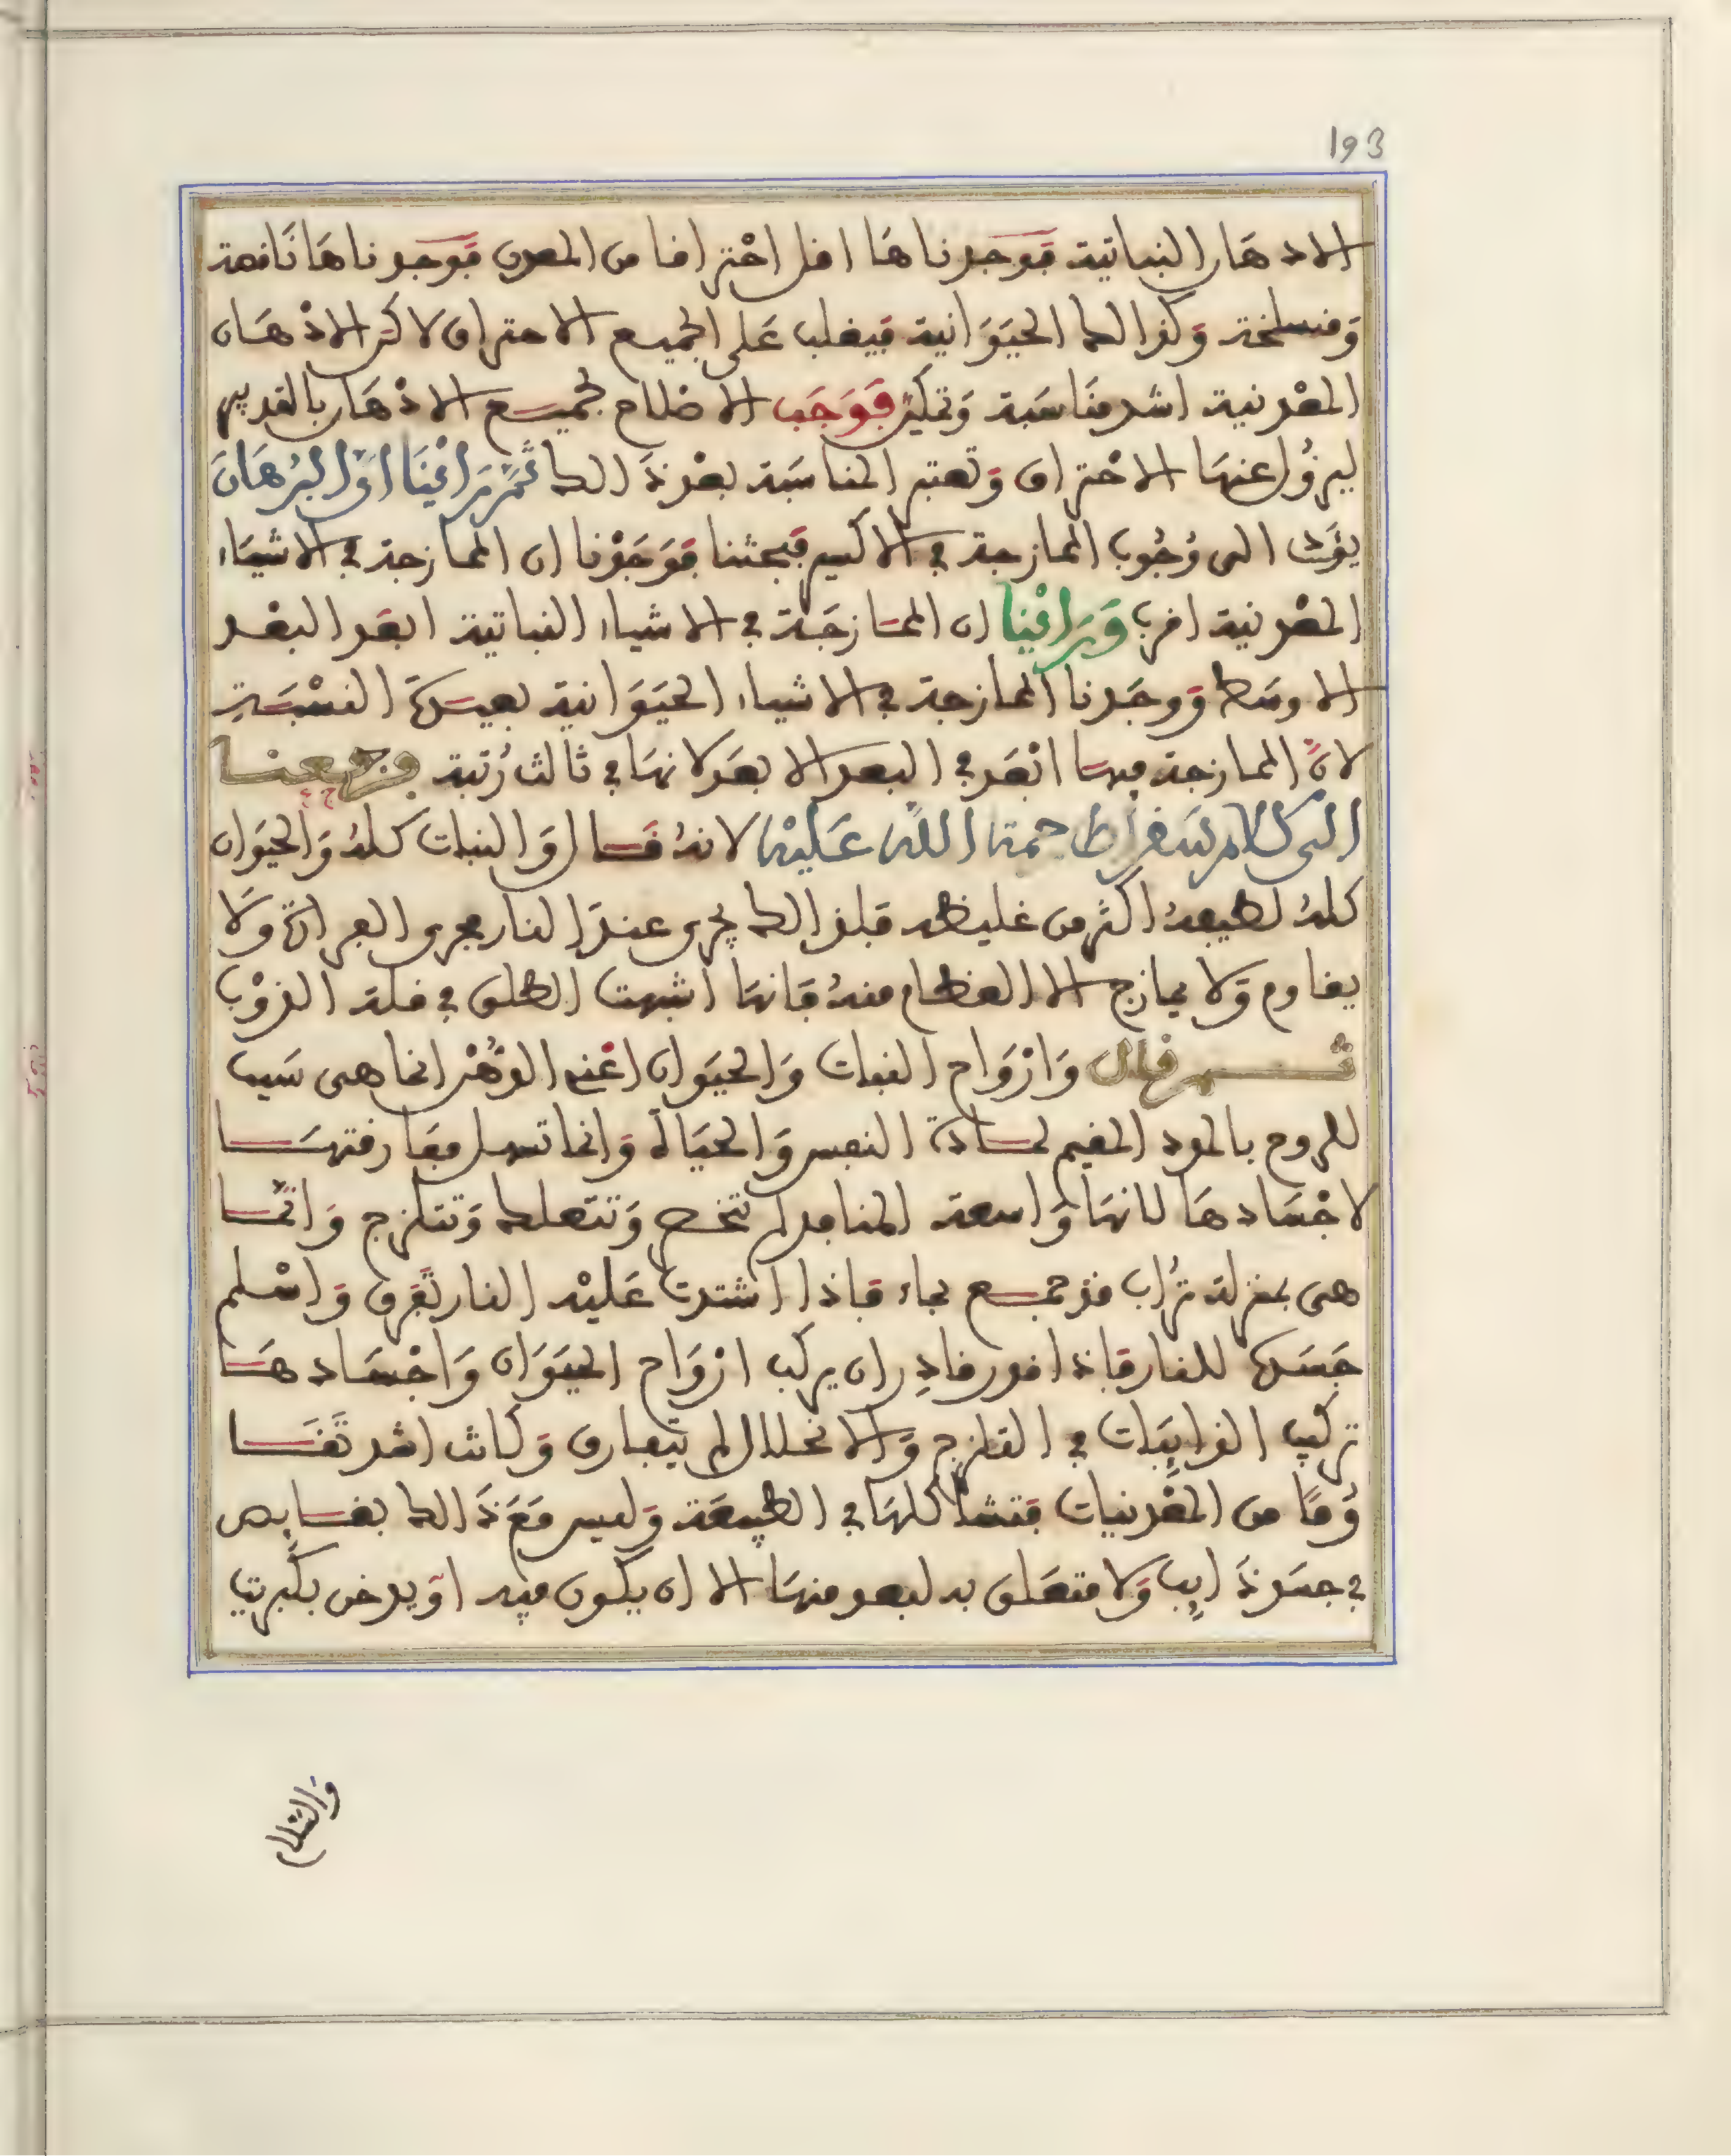 193
الادهان النباتية فوجدناها اقل احتراقا من المعدن فوجدناها ناقصة
ومنسلخة وكذالك الحيوانية فيغلب على الجميع الاحتراق لاكن الاذهان
المعدنية اشد مناسبة وتمكين فوجب الاصلاح لجميع الاذهان بالتدبير
ليزول عنها الاحتراق وتعتبر المناسبة بعد ذالك ثم رأينا ان البرهان
يؤدي الى وجوب الممازجة في الاكسير فبحثنا فوجدنا ان الممازجة في الاشياء
المعدنية اقرب ورأينا ان الممازجة في الاشياء النباتية ابعد البعد
الاوسط ووجدنا الممازجة في الاشياء الحيوانية بعيدة النسبة
لان الممازجة فيها ابعد في البعد الابعد لانها في ثالث رتبة ورجعنا
الى كلام سقراط رحمة الله عليه لانه قال والنبات كله والحيوان
كله لطيفه اكثر من غليظه فلذالك يجري عند النار مجرى الفرار ولا
يقاوم ولا يمازج الا العظام منه فانها اشبهت الطلق في قلة الذوب
ثم قال وارواح النبات والحيوان اعني الدهن انما هي سبب
للروح بالمود المقيم لمادة النفس والحياة وانما تسهل مفارقتها
لاجسادها لانها واسعة المنافد لم تتحصر وتتعلك وتتلزج وانما
هي بمنزلة تراب قد جمع بماء فاذا اشتدت عليه النار تفرق واسلم
جسده للنار فاذا قدر قادر ان يركب ارواح الحيوان واجسادها
تركيب الذايبات في التلزج والانحلال لم تتفارق وكانت اشد تقا
وما من المعدنيات فتشاكلها في الطبيعة وليس مع ذالك بغايص
في جسد ذايب ولا متعلق به لبعد منها الا ان يكون فيه او يدخن بكبريت